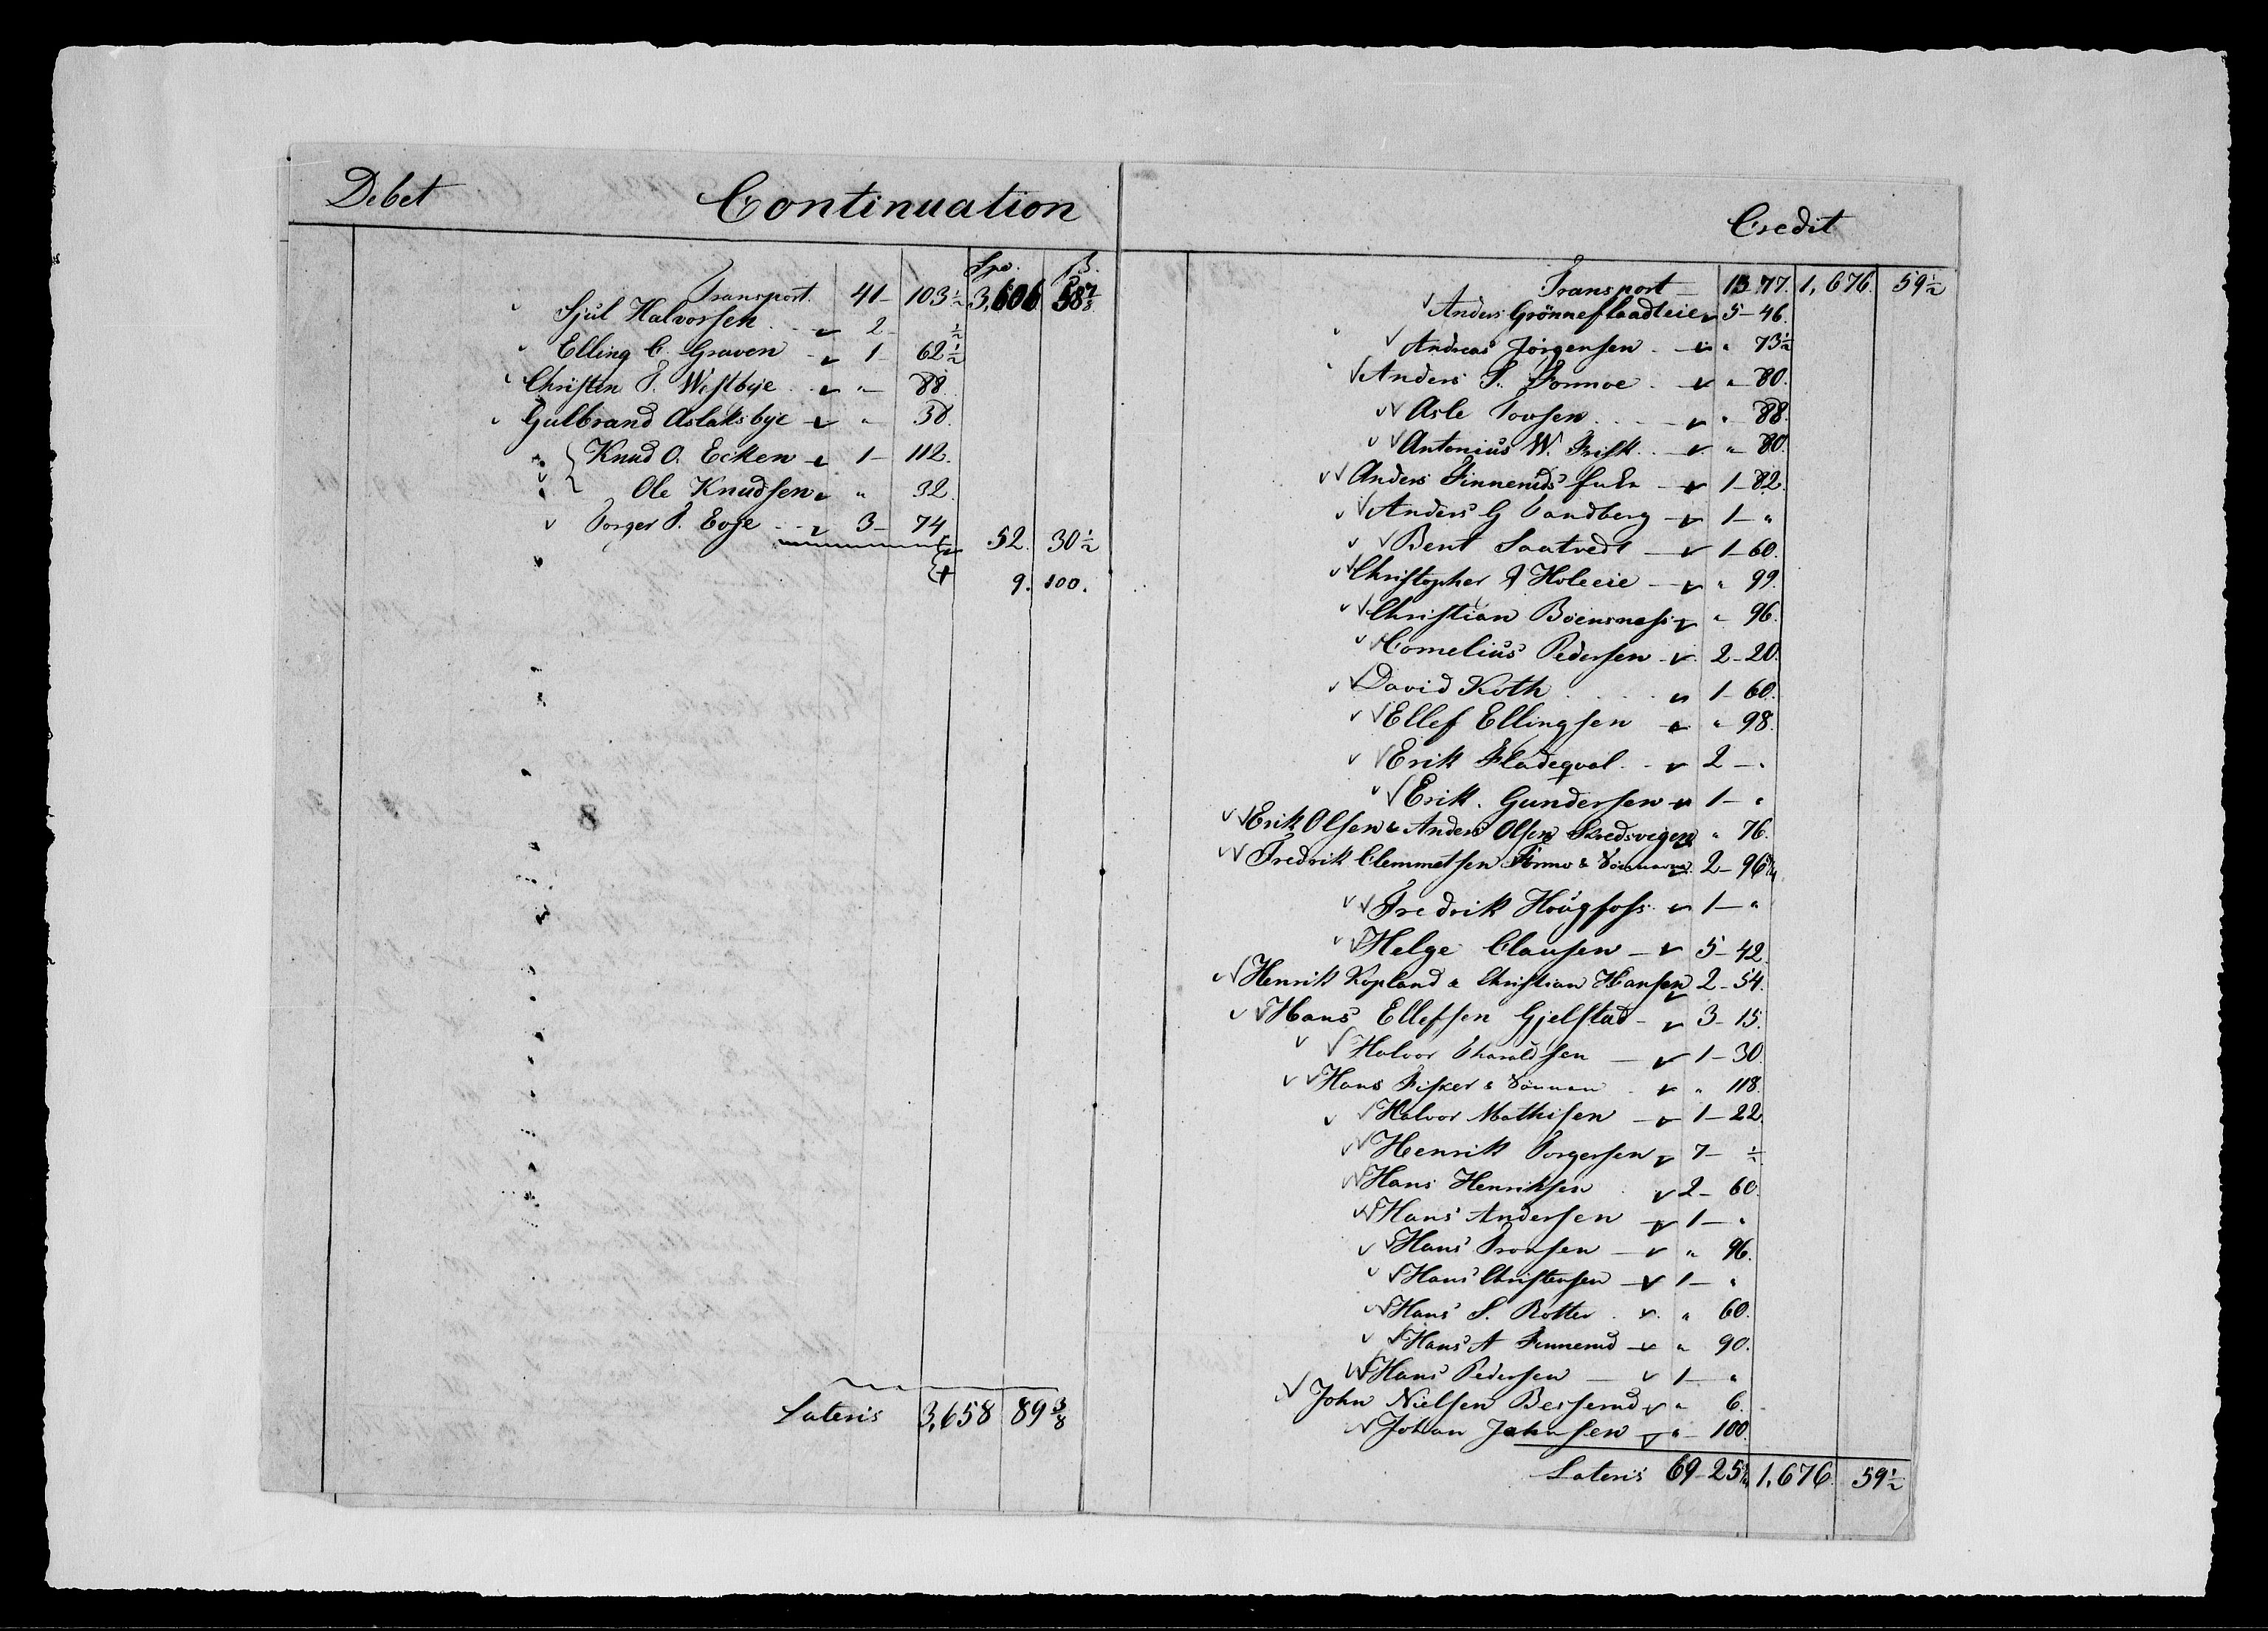 Debet Continuation
Spd. ß.
Transport. 41- 103½ 3,606 58 7/8
Sjul Halvorsen 2- ½
Elling C. Graven 1- 62½
Christen P. Westbye " 88.
Gulbrand Aslaksbye " 38.
Knud O. Ecken 1- 112.
Ole Knudsen " 32.
Torger T. Evje 3- 74
52. 30½
9. 100.
8
Lateris 3,658 89 3/8
Credit
Transport 13 77. 1,676. 59½
Anders Grönneflaadteie 5- 46.
Andreas Jörgensen " 73½
Anders S. " 80.
Asle Tovsen " 88.
Antonius W. Frisk " 80.
Anders Finneruds 1- 82.
Anders G Sandberg 1- "
Bent Saatvedt 1- 60.
Christopher Holeeie " 99.
Christian Böensness " 96.
Cornelius Pedersen 2- 20.
David Koth 1- 60.
Ellef Ellingsen " 98.
Erik Fladeqval 2- "
Erik Gundersen 1- "
Erik Olsen & Anders Olsen Skredsvigen " 76.
Fredrik Clemmetsen Formo & 2- 96
Fredrik Hougfoss 1- "
Helge Clausen 5- 42.
Henrik Kopland & Christian Hansen 2- 54.
Hans Ellefsen Gjelstad 3- 15.
Halvor Tharaldsen 1- 30.
Hans Fisker & " 118.
Halvor Mathisen 1- 22.
Henrik Torgersen 7- ½
Hans Henriksen 2- 60.
Hans Andersen 1- "
Hans Tronsen " 96.
Hans Christensen 1- "
Hans S. Rotter " 60.
Hans A Finnerud " 90.
Hans Pedersen 1- "
John Nielsen Besserud " 6.
Johan Jahnsen " 100.
Lateris 69- 25 1,676 59½